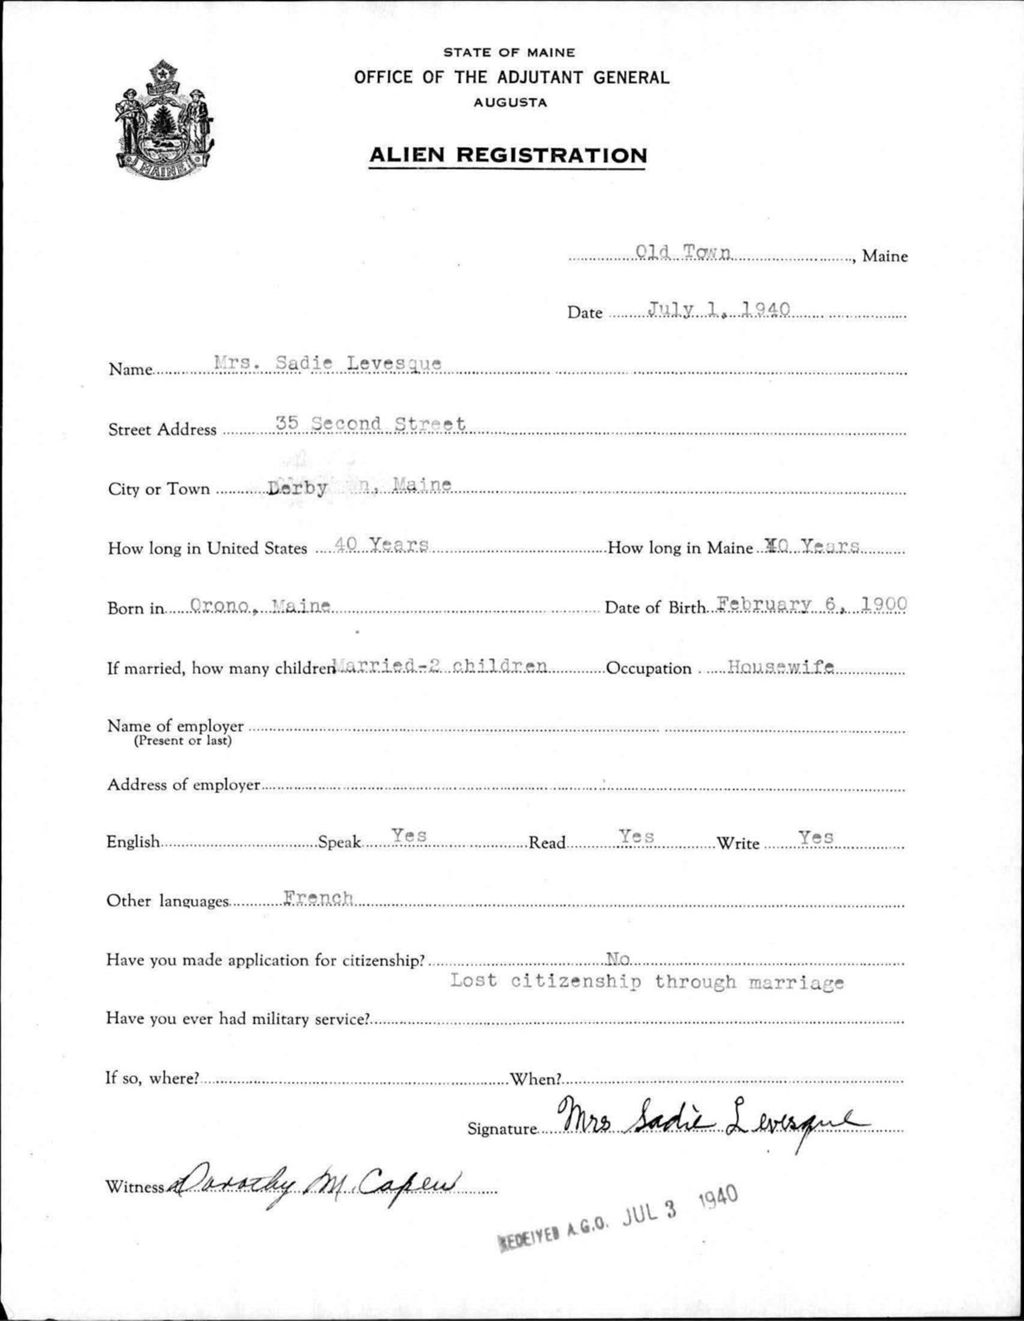 STATE OF MAINE
OFFICE OF THE ADJUTANT GENERAL
AUGUSTA
ALIEN REGISTRATION
MAINE
Old Town, Maine
Date July 1, 1940
Name Mrs. Sadie Levesque
Street Address 35 Second Street
City or Town Derby n, Maine
How long in United States 40 Years How long in Maine 40 Years
Born in Orono, Maine Date of Birth February 6, 1900
If married, how many children Married-2 children Occupation Housewife
Name of employer
(Present or last)
Address of employer
English Speak Yes Read Yes Write Yes
Other languages French
Have you made application for citizenship? No
Lost citizenship through marriage
Have you ever had military service?
If so, where? When?
Signature Mrs Sadie Levesque
Witness Dorothy M. Capen
RECEIVED A.G.O. JUL 3 1940